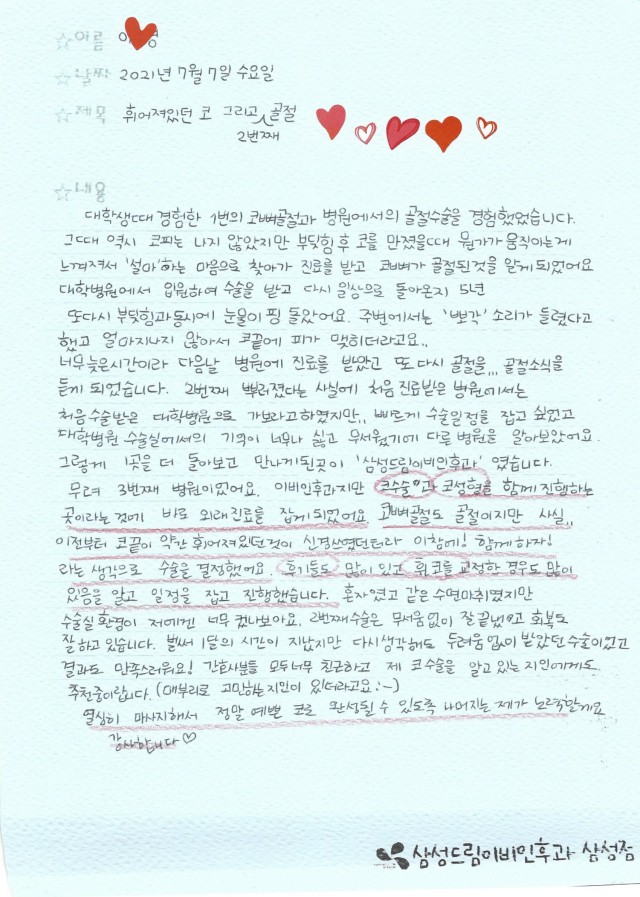 ☆이름
☆날짜 2021년 7월 7일 수요일
☆제목 휘어져있던 코 그리고 골절
2번째
☆내용
대학생때 경험한 1번의 코뼈골절과 병원에서의 골절수술을 경험했었습니다.
그때 역시 코피는 나지 않았지만 부딪힘 후 코를 만졌을때 뭔가가 움직이는게
느껴져서 '설마'하는 마음으로 찾아가 진료를 받고 코뼈가 골절된것을 알게되었어요
대학병원에서 입원하여 수술을 받고 다시 일상으로 돌아온지 5년
또다시 부딪힘과 동시에 눈물이 핑 돌았어요. 주변에서는 '뽀각' 소리가 들렸다고
했고 얼마지나지 않아서 코끝에 피가 맺히더라고요..
너무늦은시간이라 다음날 병원에 진료를 받았고 또 다시 골절을,,, 골절소식을
듣게 되었습니다. 2번째 뿌러졌다는 사실에 처음 진료받은 병원에서는
처음수술받은 대학병원으로 가보라고하였지만,, 빠르게 수술일정을 잡고 싶었고
대학병원 수술실에서의 기억이 너무나 싫고 무서웠기에 다른 병원을 알아보았어요.
그렇게 1곳을 더 돌아보고 만나게된곳이 '삼성드림이비인후과' 였습니다.
무려 3번째 병원이었어요. 이비인후과지만 코수술과 코성형을 함께 진행하는
곳이라는것에 바로 외래진료를 잡게 되었어요 코뼈골절도 골절이지만 사실,,
이전부터 코끝이 약간 휘어져있던것이 신경쓰였던터라 이참에! 함께하자!
라는 생각으로 수술을 결정했어요. 후기들도 많이 있고 휜코를 교정한 경우도 많이
있음을 알고 일정을 잡고 진행했습니다. 혼자였고 같은 수면마취였지만
수술실 환경이 저에겐 너무 컸나보아요. 2번째수술은 무서움없이 잘 끝났고 회복도
잘하고 있습니다. 벌써 1달의 시간이 지났지만 다시생각해도 두려움없이 받았던 수술이었고
결과도 만족스러워요! 간호사분들 모두너무 친근하고 제 코수술을 알고 있는 지인에게도
추천중이랍니다. (매부리로 고민하는지인이 있더라고요 :-)
열심히 마사지해서 정말 예쁜 코로 완성될 수 있도록 나머지는 제가 노력할게요
감사합니다♡
삼성드림이비인후과 삼성점